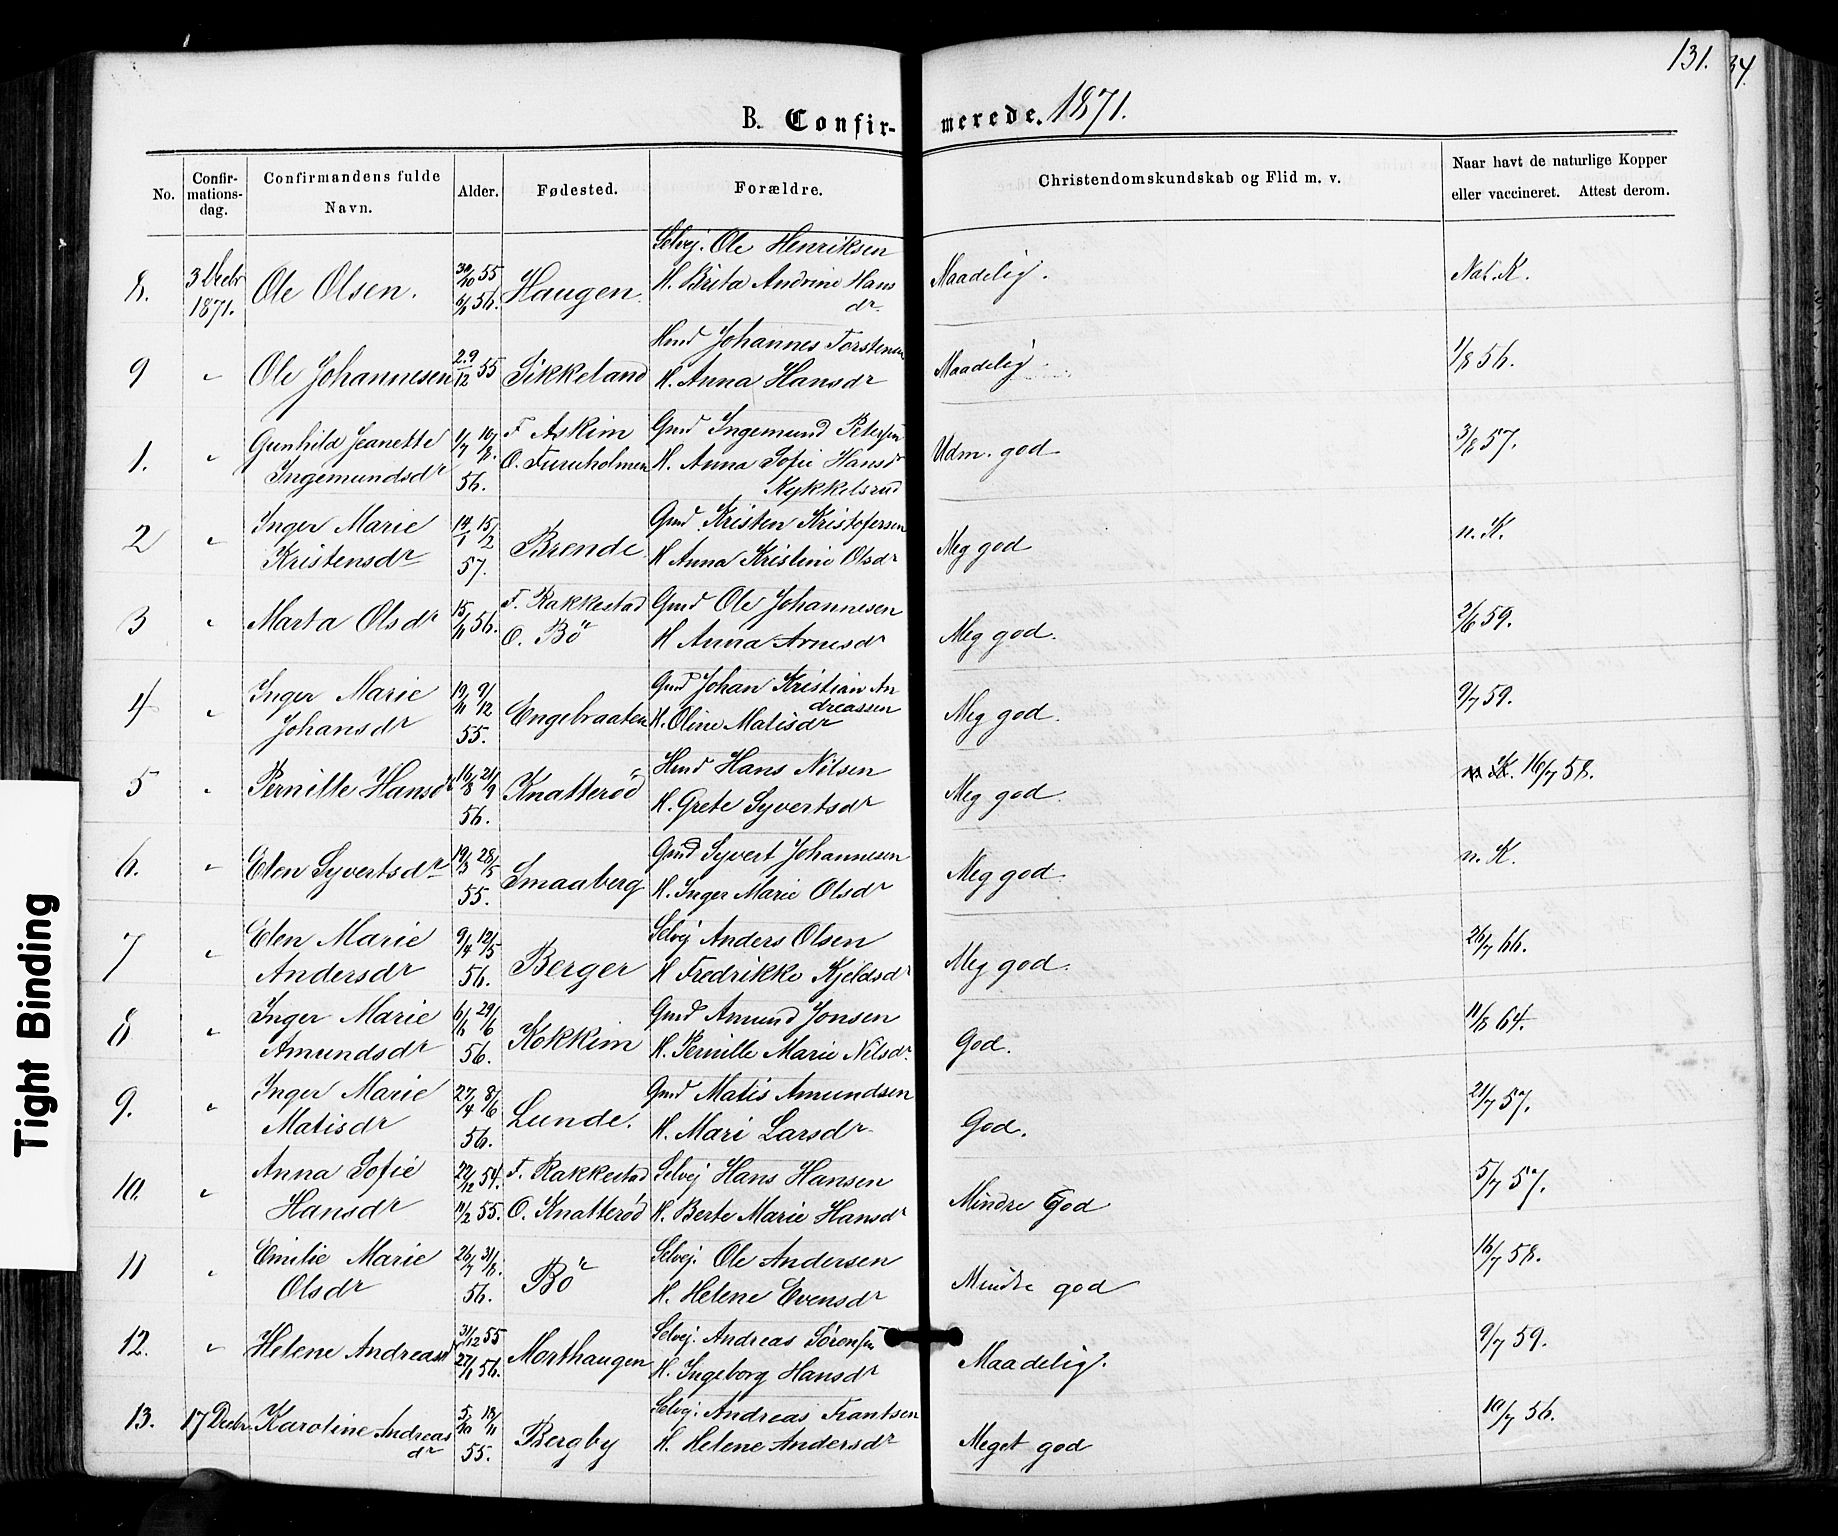 131.
34.
B. Confir- merede. 1871.
No. Confir-mations-dag. Confirmandens fulde Navn. Alder. Fødested. Forældre. Christendomskundskab og Flid m. v. Naar havt de naturlige Kopper eller vaccineret. Attest derom.
Selvej. Ole Henriksen
8. 3 Decbr 1871. Ole Olsen. 30/10 55 6/1 56. Haugen. K. Brita Andrine Hansdr. Maadelig. Nat. K.
Hmd Johannes Torstensen
9 " Ole Johannesen 29/12 55 Sikkeland K. Anna Hansdr Maadelig. 1/8 56.
Gunhild Jeanette 1/7 10/8 F. Askim Gmd Ingemund Petersen
1. " Ingemundsdr 56. O. Furuholmen K. Anna Sofie Hansdr Udm. god 3/8 57.
Kykkelsrud
Inger Marie 14/1 15/2 Gmd Kristen Kristofersen
2 " Kristensdr 57. Brende K Anna Kristine Olsdr Meg god n. K.
F. Rakkestad Gmd Ole Johannesen
3 " Marta Olsdr 15/11 56. O. Bö K Anna Arnesdr Meg god. 2/6 59.
Inger Marie 19/11 9/12 Gmd Johan Kristian Andreassen
4 " Johansdr 55. Engebraaten K. Oline Matisdr Meg god. 9/7 59.
Hmd Hans Nilsen
5 " Pernille Hansdr 16/8 21/9 56. Knatterød K. Grete Syvertsdr Meg god. n. K. 16/7 58.
Gmd Syvert Johannesen
6. " Elen Syvertsdr 19/3 28/5 55. Smaaberg K. Inger Marie Olsdr Meg god. n. K.
Elen Marie 9/4 12/5 Selvej Anders Olsen
7 " Andersdr 56. Berger K Fredrikke Kjeldsdr Meg god. 26/7 66.
Inger Marie 29/6 Gmd Amund Jonsen
8 " Amundsdr 56. Kokkim K. Pernille Marie Nilsdr. God. 11/8 64.
Inger Marie 27/4 8/6 Gmd Matis Amundsen
9. " Matisdr 56. Lunde. K. Mari Larsdr God. 21/7 57.
Anna Sofie 22/12 54. F. Rakkestad Selvej Hans Hansen
10. " Hansdr 11/2 55. O. Knatterød K. Berte Marie Hansdr Mindre God 5/7 57.
Emilie Marie 26/7 31/8 Selvej. Ole Andersen
11 " Olsdr 56. Bö K. Helene Evensdr Mindre god 16/7 58.
31/12 55 Selvej. Andreas Sørensen
12. " Helene Andreasdr 27/1 56. Morthaugen K. Ingeborg Hansdr Maadelig. 9/7 59.
Selvej. Andreas Frantsen
13. 17 Decbr. Karoline Andreasdr 5/10 18/11 55. Bergby K. Helene Andersdr Meget god 10/7 56.
Tight Binding